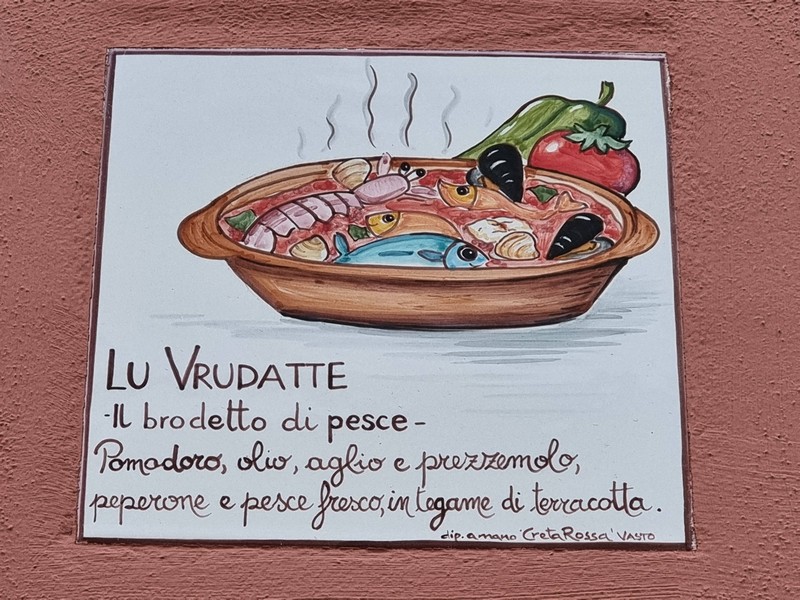 LU VRUDATTE
-Il brodetto di pesce-
Pomodoro, olio, aglio e prezzemolo,
peperone e pesce fresco, in tegame di terracotta.
dip. a mano "CretaRossa" VASTO